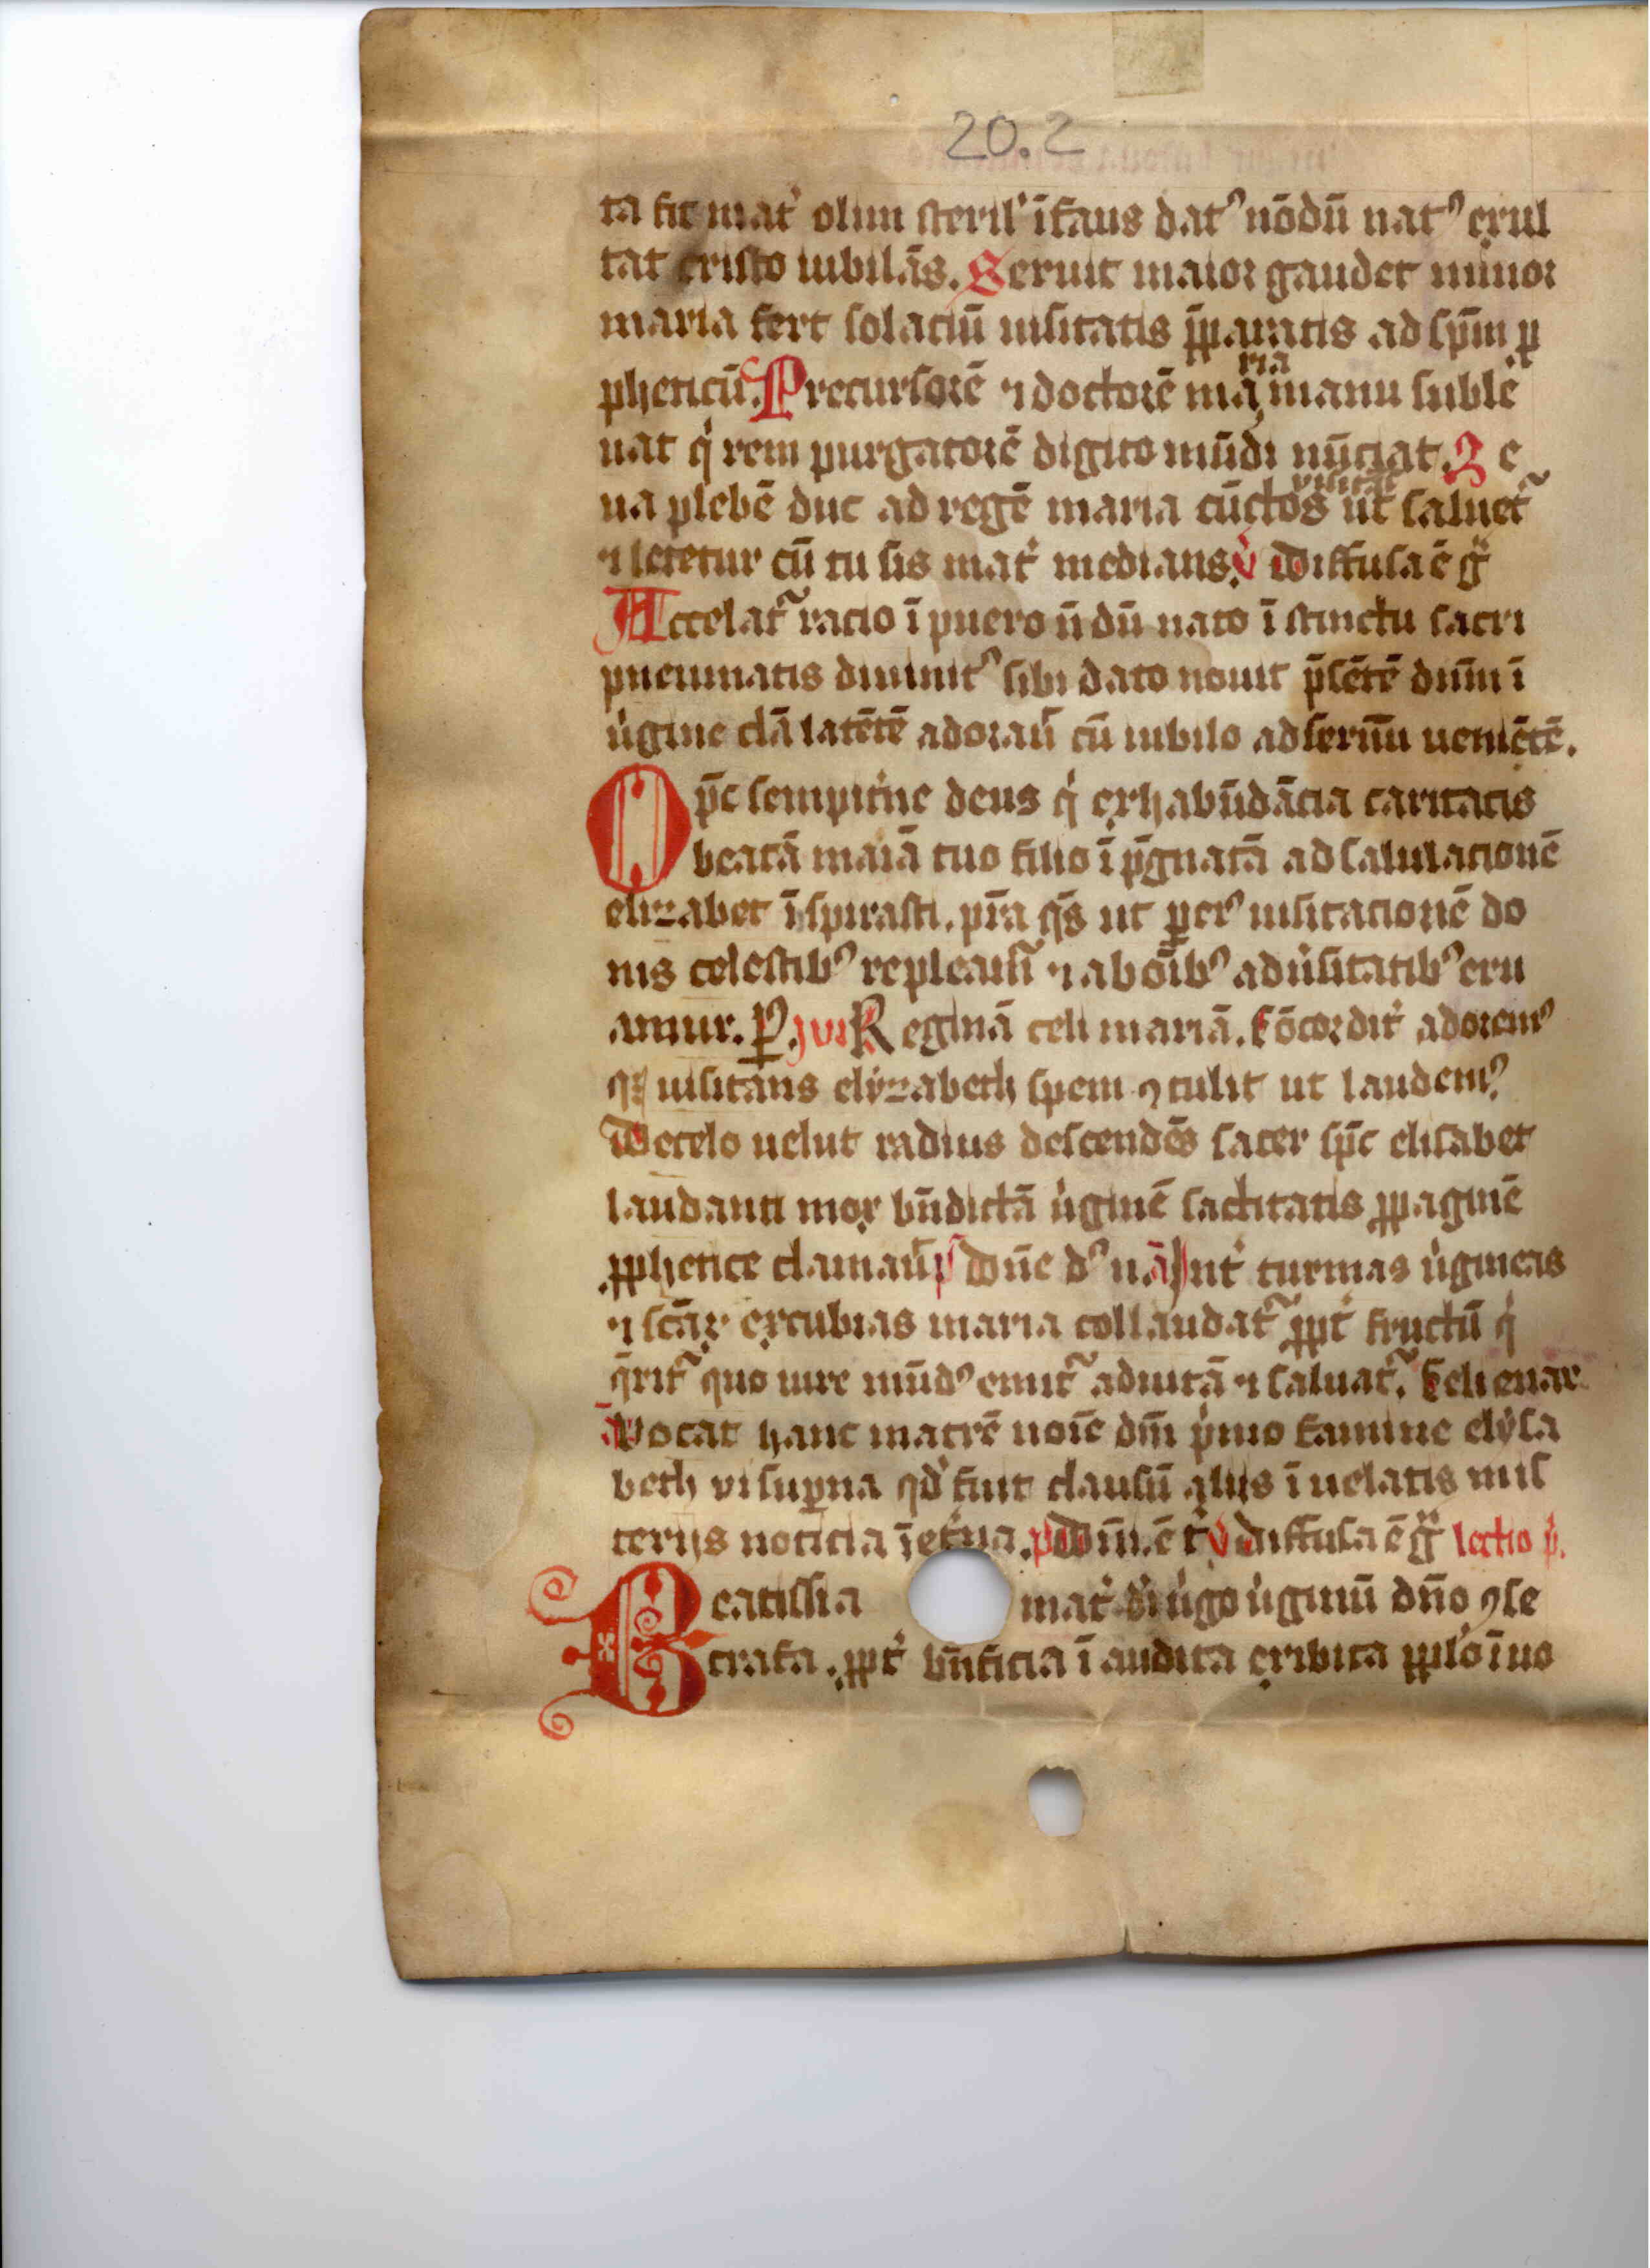 20.2
ta fit mat' olim steril' īfans dat⁹ nōdū nat⁹ exul
tat cristo iubilās. Seruit maior gaudet minor
maria fert solaciū uisitatis p̄paratis ad sp̄m p
ria
pheticū. Precursorē ⁊ doctorē mā manu suble
uat q' rem purgatorē digito mūdi nūciat. Le
visitat
ua plebē duc ad regē maria cūctos ut saluet~
⁊ letetur cū tu sis mat' medians. v̇ Diffusa ē g̃
Accelat~ racio ī puero ūdū nato īstinctu sacri
pneumatis diuinit⁹ sibi dato nouit p̄sētē dn̄m ī
u'gine clā latētē adorau̅ cū iubilo ad seruū ueniētē.
Op̄c sempit'ne deus q' exhabūdācia caritatis
beatā maiā tuo filio īp̄gnatā ad salutacionē
elizabet īspirasti. p̄ra q̄s ut p ei⁹ uisitacionē do
nis celestib⁹ repleam~ ⁊ ab oīb⁹ adu'sitatib⁹ eru
amur. P. ĩuit Reginā celi mariā. Cōcordit' adorem⁹
q̄ uisitans elyzabeth spem ꝯtulit ut laudem⁹
De celo uelut radius descendēs sacer sp̄c elisabet
laudanti mox bn̄dictā u'ginē sāctitatis ꝓpaginē
ꝓphetice clamau̅ p̄ Dn̄e d⁹ n̄ ā Int' turmas u'gineas
⁊ scāꝝ excubias maria collaudat~ ꝓpt' fructū q'
q̄rit~ quo iure mūd⁹ emit~ ad uitā ⁊ saluat~. Celi enar
ā Vocat hanc matrē noīe dn̄i p'mo famine elysa
beth vi sup̄na qd' fuit clausū alijs īuelatis mis
terijs noticia īet'na. p̄ Dn̄i ē t' v̇ diffusa ē g̃ lectio p'.
Beatissīa mat' di' u'go u'ginū dn̄o ꝯse
crata. ꝓpt' bn̄ficia īaudita exibita ppl'o īuo